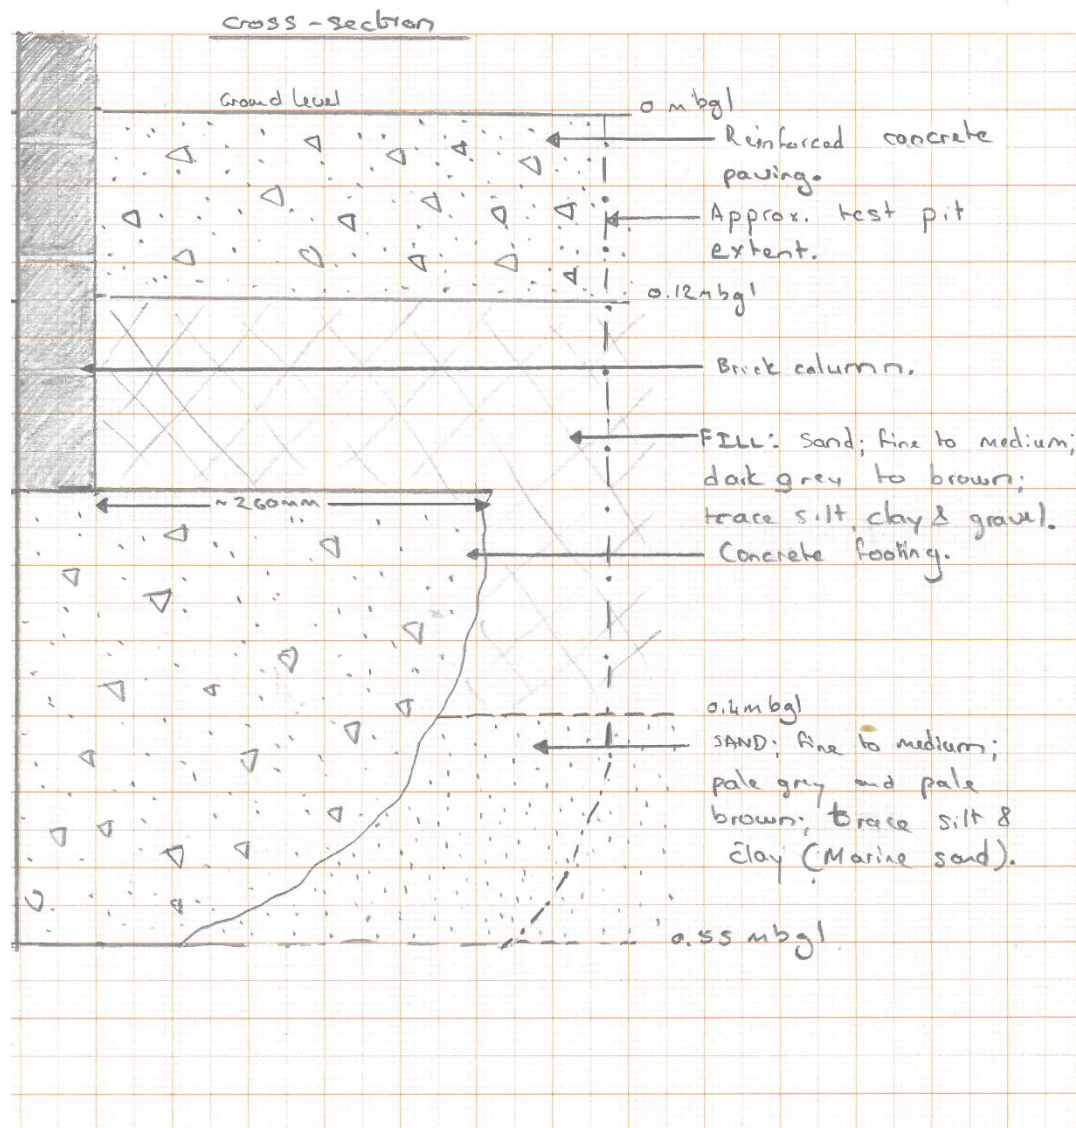 cross-section
Ground level
0 mbgl
Reinforced concrete
paving.
Approx. test pit
extent.
0.12mbgl
Brick column.
FILL: Sand; fine to medium;
dark grey to brown;
trace silt, clay & gravel.
~260mm
Concrete footing.
0.4mbgl
SAND: fine to medium;
pale grey and pale
brown; trace silt &
clay (Marine sand).
0.55 mbgl